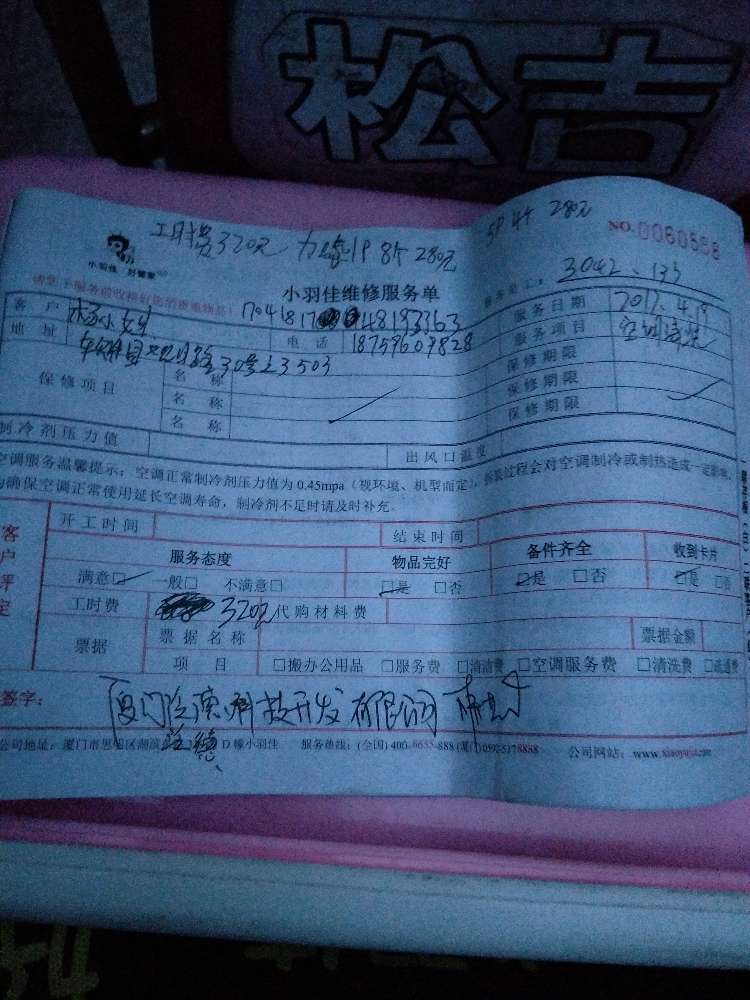 松吉
工时费320元 5P 4个 280元
1P 8个 280元
NO.0060558
小羽佳 好管家
小羽佳维修服务单
服务员工: 3042、133
请您于服务前收捡好您的贵重物品!
客户 小女士 电话 18759609828 服务日期 2017.4.19
地址 30号之503 服务项目 空调清洗
保修项目 名称 保修期限
名称 保修期限
名称 保修期限
制冷剂压力值 出风口温度
空调服务温馨提示：空调正常制冷剂压力值为 0.45mpa（视环境、机型而定），拆装过程会对空调制冷或制热造成一定影响，
为确保空调正常使用延长空调寿命，制冷剂不足时请及时补充。
客户评定
开工时间 结束时间
服务态度 物品完好 备件齐全 收到卡片
满意☑ 一般□ 不满意□ ☑是 □否 ☑是 □否 ☑是 □否
工时费 320元 代购材料费
票据 票据名称 票据金额
项目 □搬办公用品 □服务费 □清洁费 □空调服务费 □清洗费 □疏通费
签字: 厦门 科技开发有限公司
公司地址：厦门市思明区湖滨 D幢小羽佳 服务热线：(全国) 400-6655-888 公司网站：www.xiaoyujia.com